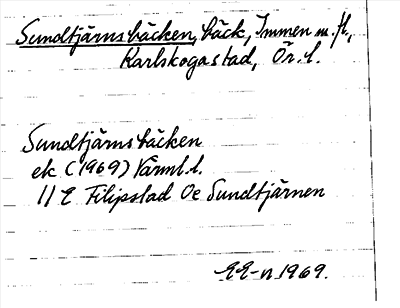 Sundtjärnsbäcken, bäck, Immen m. fl.,
Karlskoga stad, Ör. l.
Sundtjärnsbäcken
ek (1969) Värml. l.
11 E Filipstad 0e Sundtjärnen
1969.